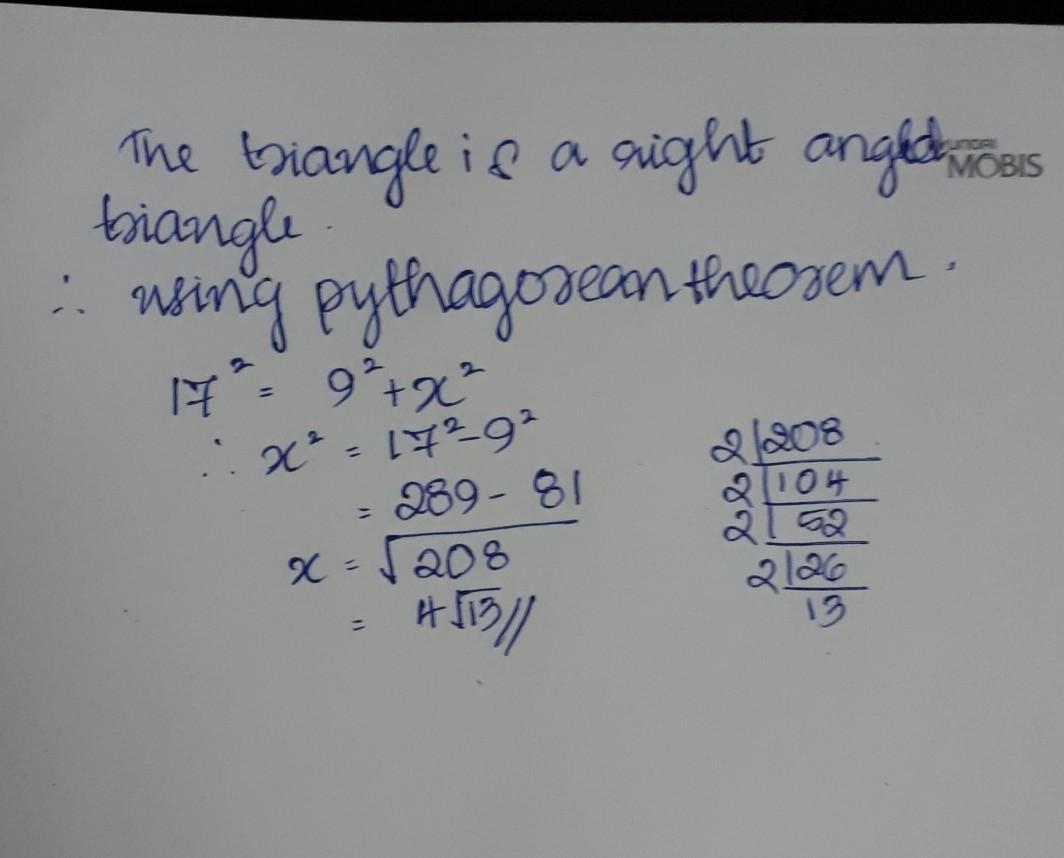 The triangle is a right angled
HYUNDAI
MOBIS
triangle.
∴ using pythagorean theorem.
17² = 9² + x²
∴ x² = 17² - 9²
= 289 - 81
x = √208
= 4√13//
2|208
2|104
2|52
2|26
13